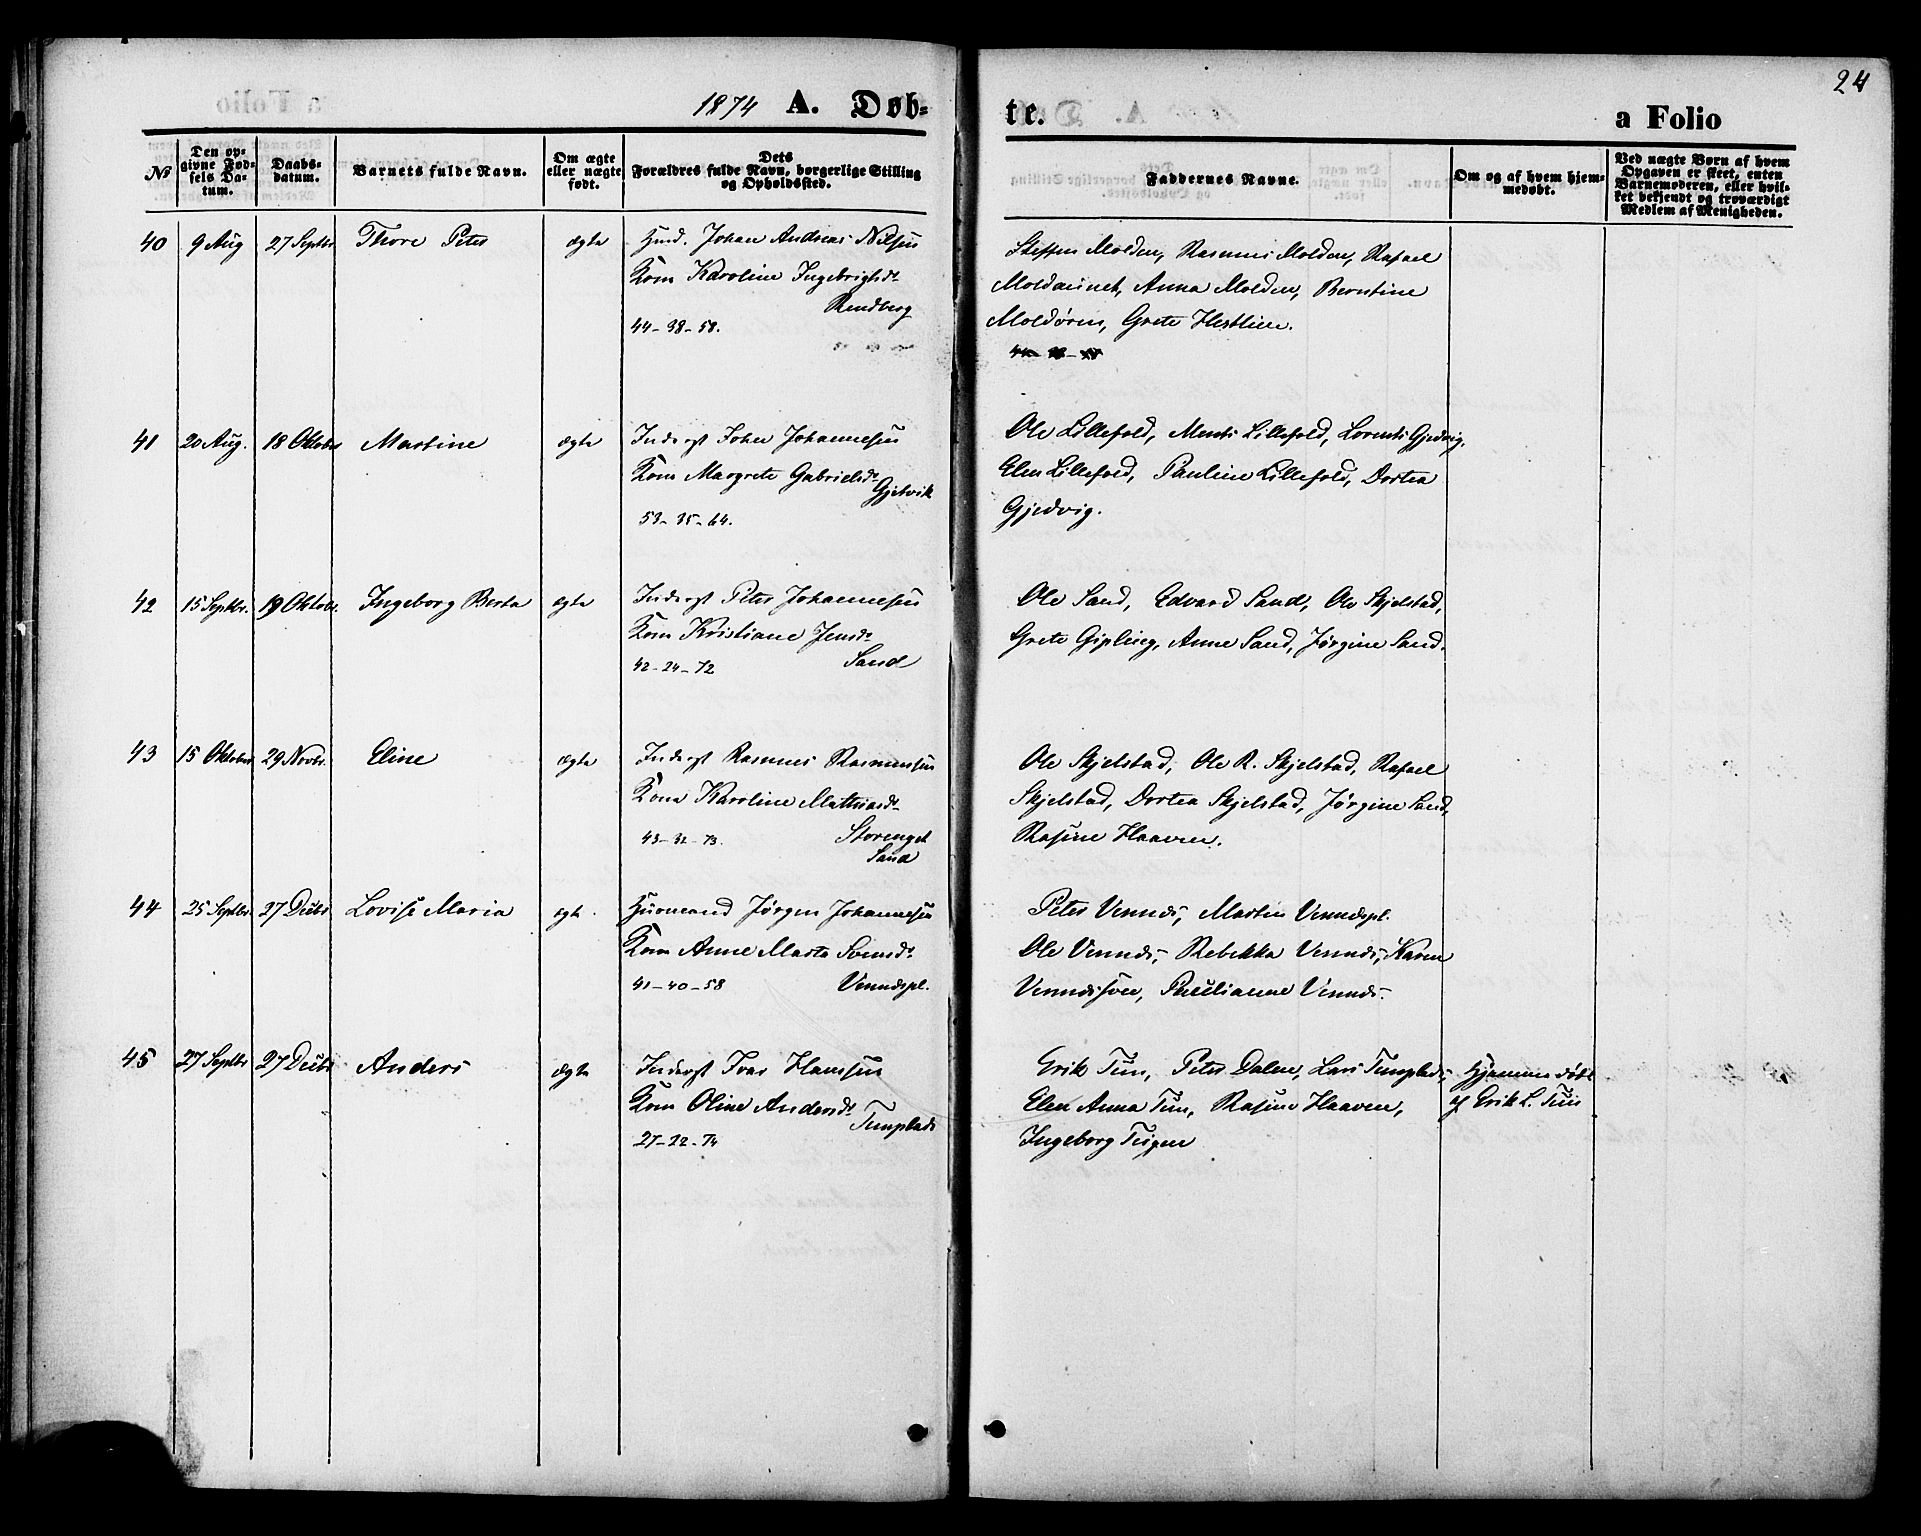 24
1874 A. Døb-
te.
a Folio
№
Den op-
givne Fød-
sels Da-
tum.
Daabs-
datum.
Barnets fulde Navn.
Om ægte
eller nægte
født.
Dets
Forældres fulde Navn, borgerlige Stilling
og Opholdssted.
Faddernes Navne.
Om og af hvem hjem-
medøbt.
Ved nægte Børn af hvem
Opgaven er skeet, enten
Barnemoderen, eller hvil-
ket bekjendt og troværdigt
Medlem af Menigheden.
40 9 Aug 27 Septbr Thore Peter ægte Husd. Johan Andreas Nilsen
Kone Karoline Ingebrigtsdr
Rendberg
44-38-58.
Steffen Molden, Rasmus Molden, Rafael
Moldaunet, Anna Molden, Berntine
Moldøren, Grete Hestlien.
41 20 Aug. 18 Oktober Martine ægte Inderst Johan Johannesen
Kone Margrete Gabrielsdr
Gjetvik
53-35-64.
Ole Lillefold, Ments Lillefold, Lorents Gjedvig,
Elen Lillefold, Pauline Lillefold, Dortea
Gjedvig.
42 15 Septbr. 19 Oktobr. Ingeborg Berta ægte Inderst Peter Johannesen
Kone Kristiane Jensdr
Sand
42-24-72
Ole Sand, Edvard Sand, Ole Skjelstad,
Grete Gipling, Anne Sand, Jørgine Sand.
43 15 Oktober 29 Novbr. Eline ægte Inderst Rasmus Rasmussen
Kone Karoline Mathiasdr
Storenget
43-32-73.
Sand
Ole Skjelstad, Ole R. Skjelstad, Rafael
Skjelstad, Dortea Skjelstad, Jørgine Sand,
Rasine Haaven.
44 25 Septbr. 27 Decbr Lovise Maria ægte. Husmand Jørgen Johannesen
Kone Anne Marta Svensdr
41-40-58 Venndspl.
Peter Vennds, Martin Venndspl.
Ole Vennds, Rebekka Vennds, Karen
Venndsøen, Paulianne Vennds.
45 27 Septbr 27 Decbr Anders ægte Inderst Ivar Hansen
Kone Oline Andersdr
Tunplads
27-22-74
Erik Tun, Peter Dalen, Lars Tunplads,
Elen Anna Tun, Rasine Haaven,
Ingeborg Tugen
Hjemmedøbt
af Erik L. Tun